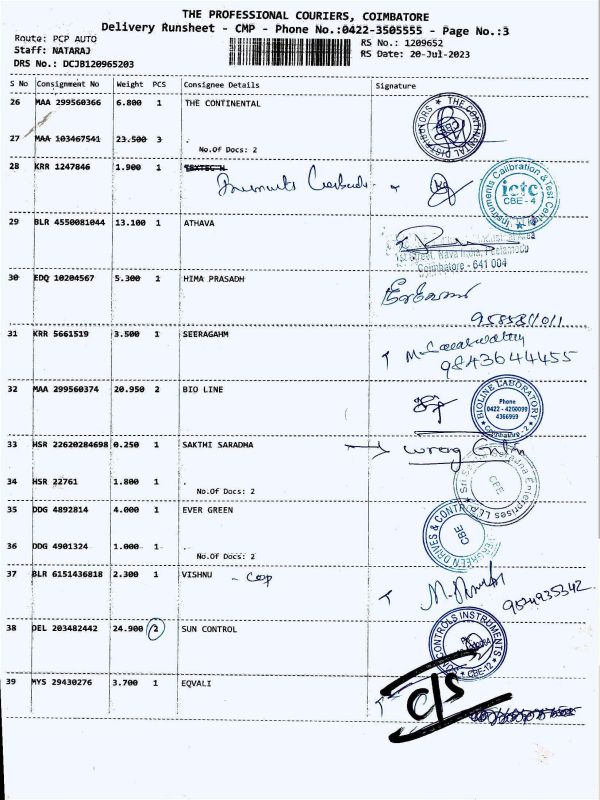 THE PROFESSIONAL COURIERS, COIMBATORE
Delivery Runsheet - CMP - Phone No.:0422-3505555 - Page No.:3
Route: PCP AUTO
RS No.: 1209652
Staff: NATARAJ
RS Date: 20-Jul-2023
DRS No.: DCJB120965203
S No Consignment No Weight PCS Consignee Details Signature
26 MAA 299560366 6.800 1 THE CONTINENTAL
THE CONTINENTAL DISTRIBUTORS
27 MAA 103467541 23.500 3
No.Of Docs: 2
28 KRR 1247846 1.900 1
Instruments Calibration & Test Centre
ictc
CBE - 4
29 BLR 4550081044 13.100 1 ATHAVA
1st Street, Nava India, Peelamedu
Coimbatore - 641 004
30 EDQ 10204567 5.300 1 HIMA PRASADH
31 KRR 5661519 3.500 1 SEERAGAHM
9843644455
32 MAA 299560374 20.950 2 BIO LINE
BIOLINE LABORATORY
Phone
0422 - 4200099
4366999
Coimbatore - 2
33 HSR 22620284698 0.250 1 SAKTHI SARADHA
wrong
34 HSR 22761 1.800 1
No.Of Docs: 2
Enterprises LLP
CBE
35 DDG 4892814 4.000 1 EVER GREEN
EVERGREEN DRIVES & CONTROLS
CBE
36 DDG 4901324 1.000 1
No.Of Docs: 2
37 BLR 6151436818 2.300 1 VISHNU
38 DEL 203482442 24.900 2 SUN CONTROL
CONTROLS INSTRUMENTS
CBE-12
39 MYS 29430276 3.700 1 EQVALI
C/S